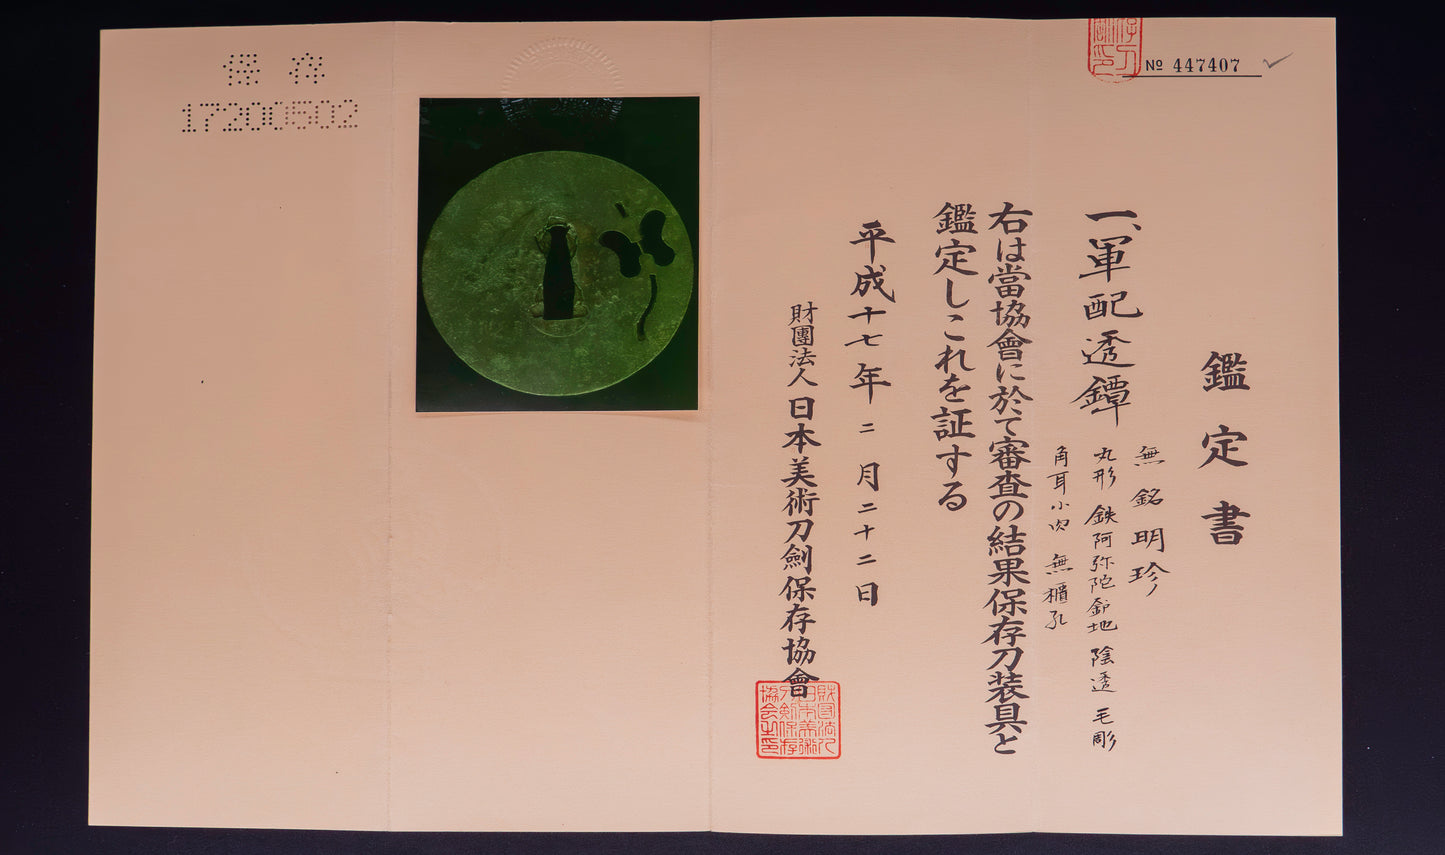 № 447407
鑑定書
一、軍配透鐔
無銘明珍
丸形 鉄阿弥陀鑢地 陰透 毛彫
角耳小肉 無櫃孔
右は當協會に於て審査の結果保存刀装具と
鑑定しこれを証する
平成十七年二月二十二日
財團法人日本美術刀劍保存協會
財団法人日本美術刀剣保存協会之印
保存
17200502